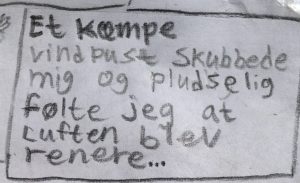 Et Kæmpe
vindpust skubbede
mig og pludselig
følte jeg at
Luften blev
renere...